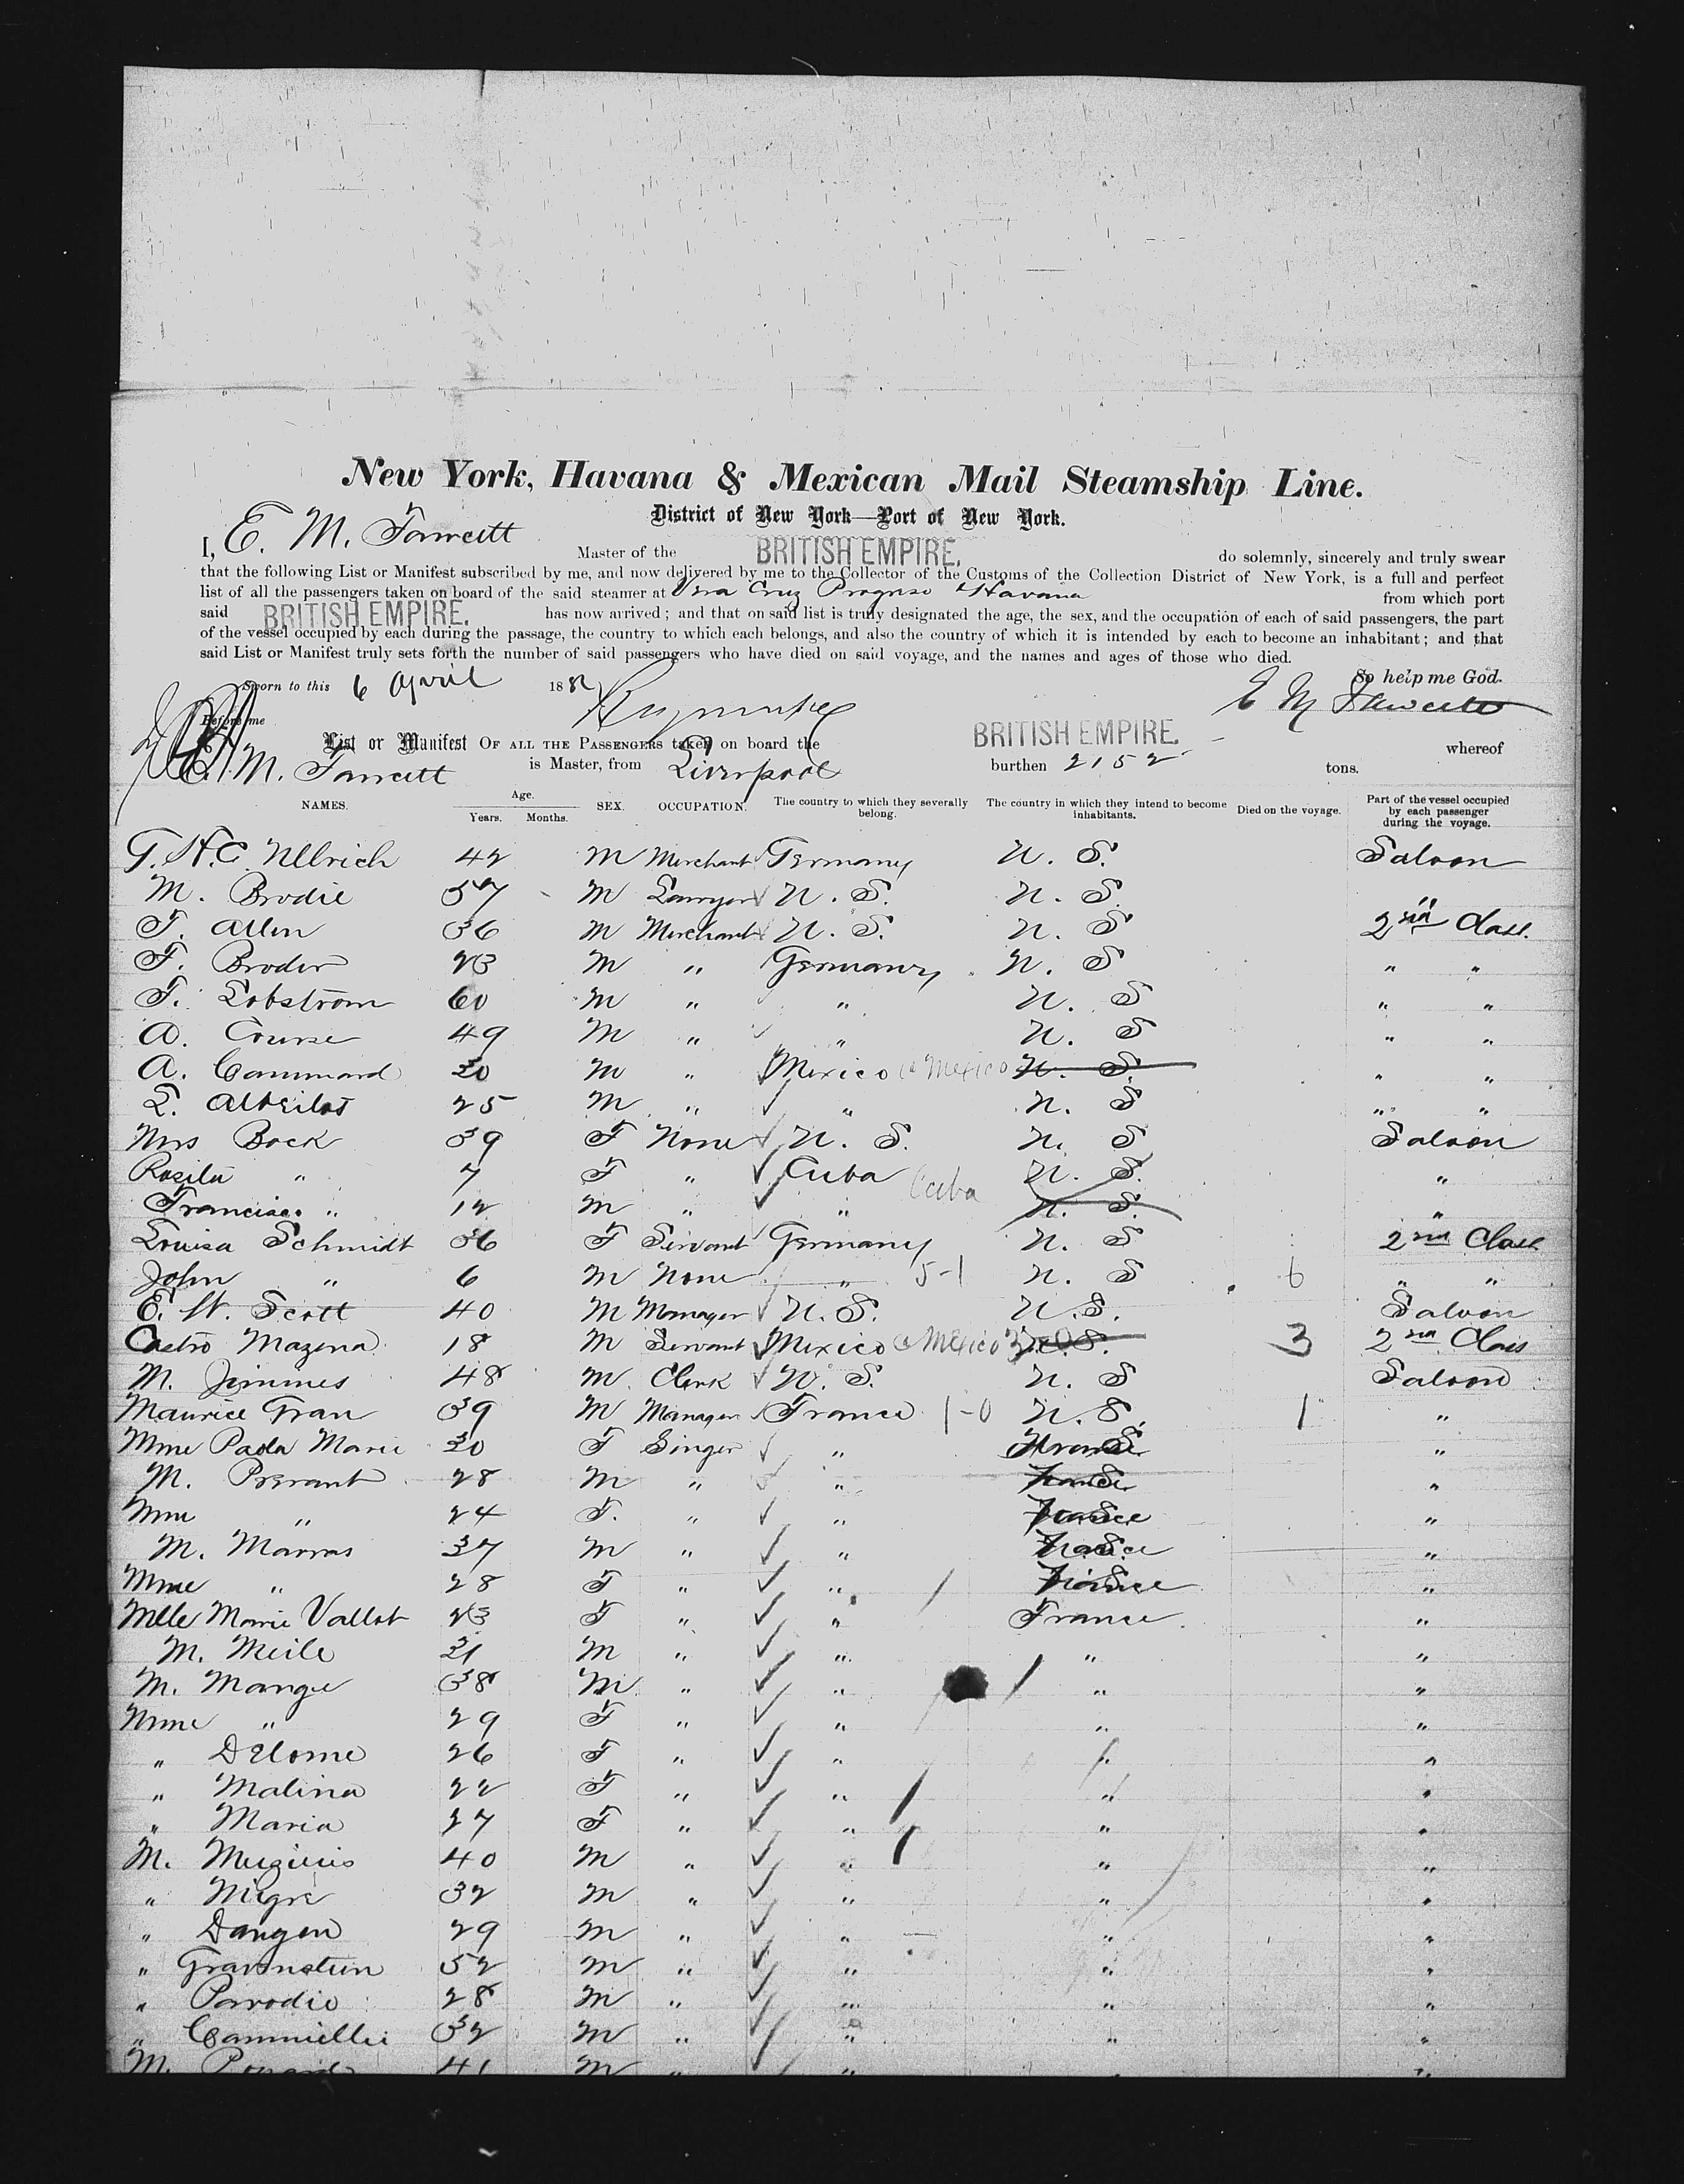 New York, Havana & Mexican Mail Steamship Line.
District of New York—Port of New York.
I, E. M. Fawcett Master of the BRITISH EMPIRE. do solemnly, sincerely and truly swear
that the following List or Manifest subscribed by me, and now delivered by me to the Collector of the Customs of the Collection District of New York, is a full and perfect
list of all the passengers taken on board of the said steamer at Vera Cruz Progreso & Havana from which port
said BRITISH EMPIRE. has now arrived; and that on said list is truly designated the age, the sex, and the occupation of each of said passengers, the part
of the vessel occupied by each during the passage, the country to which each belongs, and also the country of which it is intended by each to become an inhabitant; and that
said List or Manifest truly sets forth the number of said passengers who have died on said voyage, and the names and ages of those who died.
Sworn to this 6 April 1882 So help me God.
Before me E M Fawcett
List or Manifest OF ALL THE PASSENGERS taken on board the BRITISH EMPIRE. whereof
E. M. Fawcett is Master, from Liverpool burthen 2152 tons.
NAMES. Age. Years. Months. SEX. OCCUPATION. The country to which they severally belong. The country in which they intend to become inhabitants. Died on the voyage. Part of the vessel occupied by each passenger during the voyage.
G. H. C. Ullrich 42 M Merchant Germany U. S. Saloon
M. Brodie 57 M Lawyer U. S. U. S. "
F. Allen 36 M Merchant U. S. U. S 2nd Class
F. Broder 23 M " Germany U. S " "
F. Lobstrom 60 M " " U. S " "
A. Course 49 M " " U. S " "
A. Cammard 30 M " Mexico Mexico U. S. " "
L. 25 M " " U. S " "
Mrs Bock 39 F None U. S. U. S Saloon
Rosita " 7 F " Cuba U. S. "
Francisco " 12 M " " Cuba U. S. "
Louisa Schmidt 36 F Servant Germany U. S 2nd Class
John " 6 M None " 5-1 U. S 6 " "
E. W. Scott 40 M Manager U. S. U. S. Saloon
Castro Mazena 18 M Servant Mexico Mexico U. S. 3 2nd Class
M. Jimmes 48 M Clerk U. S. U. S Saloon
Maurice Grau 39 M Manager France 1-0 U. S. 1 "
Mme Paola Marie 30 F Singer " France "
M. 28 M " " France "
Mme " 24 F. " " France "
M. Marras 37 M " " France "
Mme " 28 F " " France "
Mlle Marie Vallot 23 F " " France "
M. Meile 31 M " " " "
M. Mange 38 M " " " "
Mme " 29 F " " " "
" Delorme 26 F " " " "
" Malina 22 F " " " "
" Maria 27 F " " " "
M. 40 M " " " "
" Nigri 32 M " " " "
" Dangon 29 M " " " "
" 52 M " " " "
" Parodie 28 M " " " "
" 32 M " " " "
M. 41 M " " " "